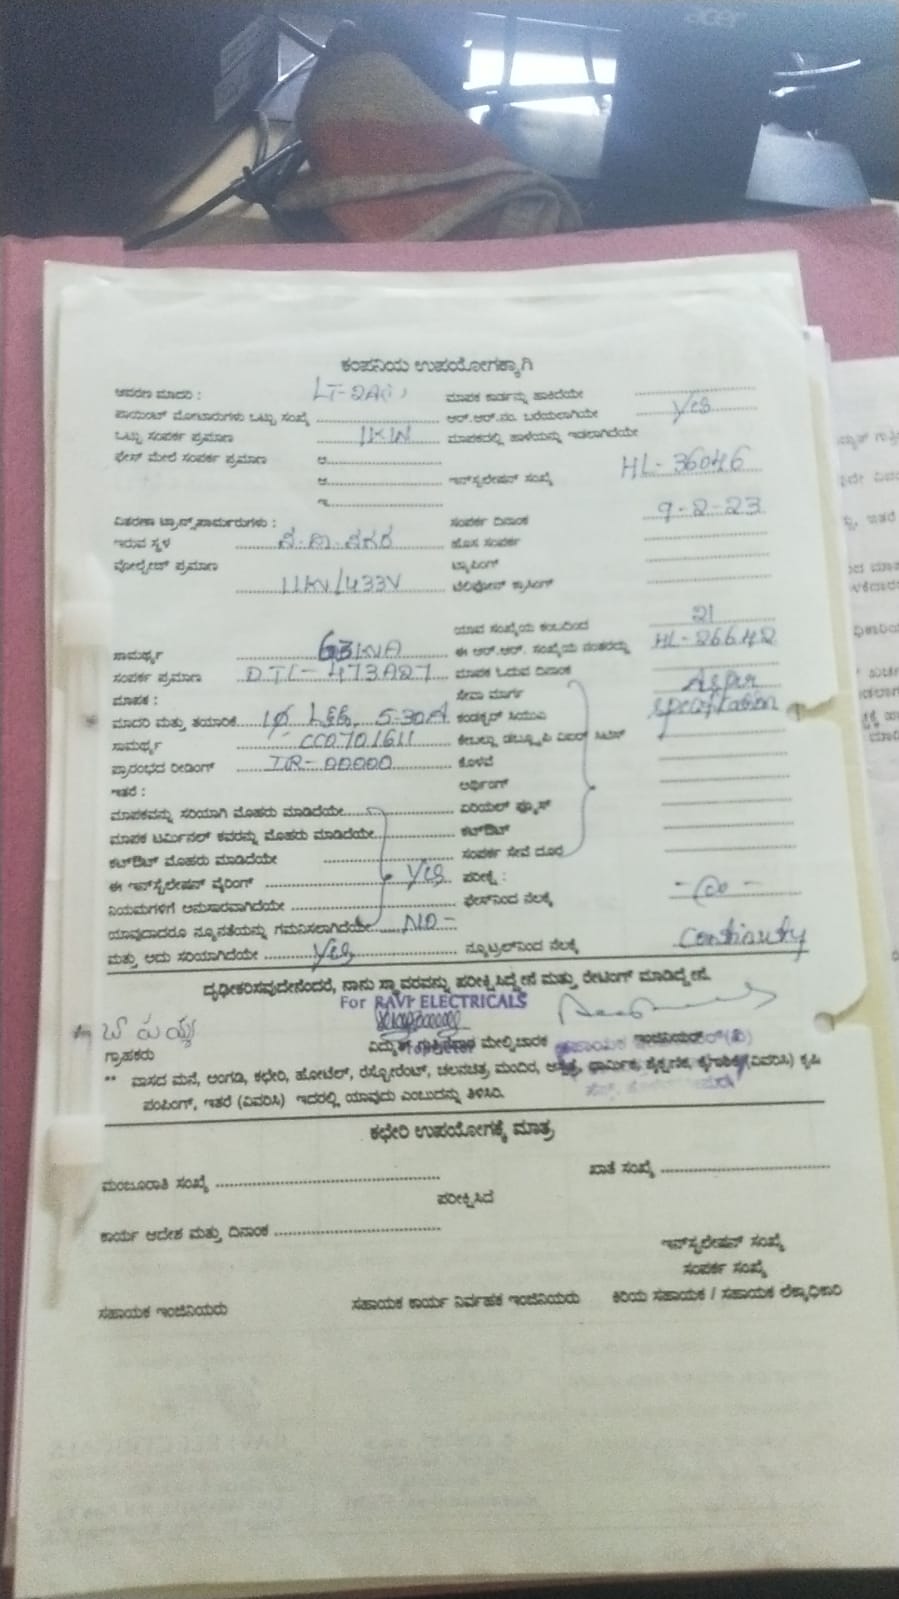 acer
ಕಂಪನಿಯ ಉಪಯೋಗಕ್ಕಾಗಿ
ಆವರಣ ಮಾದರಿ : LT-2A(i) ಮಾಪಕ ಕಾರ್ಡನ್ನು ಹಾಕಿದೆಯೇ
ಪಾಯಿಂಟ್ ಮೋಟಾರುಗಳು ಒಟ್ಟು ಸಂಖ್ಯೆ ಆರ್.ಆರ್.ನಂ. ಬರೆಯಲಾಗಿಯೇ Yes
ಒಟ್ಟು ಸಂಪರ್ಕ ಪ್ರಮಾಣ 1KW ಮಾಪಕದಲ್ಲಿ ಹಾಳೆಯನ್ನು ಇಡಲಾಗಿದೆಯೇ
ಫೇಸ್ ಮೇಲೆ ಸಂಪರ್ಕ ಪ್ರಮಾಣ ಅ.
ಆ. ಇನ್‌ಸ್ಟಲೇಷನ್ ಸಂಖ್ಯೆ HL-36046
ಇ.
ವಿತರಣಾ ಟ್ರಾನ್ಸ್‌ಫಾರ್ಮರುಗಳು : ಸಂಪರ್ಕ ದಿನಾಂಕ 9-2-23
ಇರುವ ಸ್ಥಳ ಹೊಸ ಸಂಪರ್ಕ
ವೋಲ್ಟೇಜ್ ಪ್ರಮಾಣ ಟ್ಯಾಪಿಂಗ್
11KV/433V ಟೆಲಿಫೋನ್ ಕ್ರಾಸಿಂಗ್
ಯಾವ ಸಂಖ್ಯೆಯ ಕಂಬದಿಂದ 21
ಸಾಮರ್ಥ್ಯ 63KVA ಈ ಆರ್.ಆರ್. ಸಂಖ್ಯೆಯ ನಂತರದ್ದು HL-26642
ಸಂಪರ್ಕ ಪ್ರಮಾಣ DTC-473A27 ಮಾಪಕ ಓದುವ ದಿನಾಂಕ
ಮಾಪಕ : ಸೇವಾ ಮಾರ್ಗ As per
ಮಾದರಿ ಮತ್ತು ತಯಾರಿಕೆ 1φ L&G, 5-30A ಕಂಡಕ್ಟರ್ ಸಿಯುವಿ specification
ಸಾಮರ್ಥ್ಯ CC0701611 ಕೇಬಲ್ಲು
ಪ್ರಾರಂಭದ ರೀಡಿಂಗ್ IR-00000 ಕೊಳವೆ
ಇತರೆ : ಅರ್ಥಿಂಗ್
ಮಾಪಕವನ್ನು ಸರಿಯಾಗಿ ಮೊಹರು ಮಾಡಿದೆಯೇ ಏರಿಯಲ್ ಫ್ಯೂಸ್
ಮಾಪಕ ಟರ್ಮಿನಲ್ ಕವರನ್ನು ಮೊಹರು ಮಾಡಿದೆಯೇ ಕಟ್‌ಔಟ್
ಕಟ್‌ಔಟ್ ಮೊಹರು ಮಾಡಿದೆಯೇ ಸಂಪರ್ಕ ಸೇವೆ ದೂರ
ಈ ಇನ್‌ಸ್ಟಲೇಷನ್ ವೈರಿಂಗ್ Yes ಪರೀಕ್ಷೆ :
ನಿಯಮಗಳಿಗೆ ಅನುಸಾರವಾಗಿದೆಯೇ ಫೇಸ್‌ನಿಂದ ನೆಲಕ್ಕೆ
ಯಾವುದಾದರೂ ನ್ಯೂನತೆಯನ್ನು ಗಮನಿಸಲಾಗಿದೆಯೇ NO-
ಮತ್ತು ಅದು ಸರಿಯಾಗಿದೆಯೇ Yes ನ್ಯೂಟ್ರಲ್‌ನಿಂದ ನೆಲಕ್ಕೆ Continuty
ದೃಢೀಕರಿಸವುದೇನೆಂದರೆ, ನಾನು ಸ್ಥಾವರವನ್ನು ಪರೀಕ್ಷಿಸಿದ್ದೇನೆ ಮತ್ತು ರೇಟಿಂಗ್ ಮಾಡಿದ್ದೇನೆ.
For RAVI ELECTRICALS
ಗ್ರಾಹಕರು ವಿದ್ಯುತ್ ಗುತ್ತಿಗೆದಾರ ಮೇಲ್ವಿಚಾರಕ ಇಂಜಿನಿಯರ್
** ವಾಸದ ಮನೆ, ಅಂಗಡಿ, ಕಛೇರಿ, ಹೋಟೆಲ್, ರೆಸ್ಟೋರೆಂಟ್, ಚಲನಚಿತ್ರ ಮಂದಿರ, ಆಸ್ಪತ್ರೆ, ಧಾರ್ಮಿಕ, ಶೈಕ್ಷಣಿಕ, ಕೈಗಾರಿಕೆ (ವಿವರಿಸಿ) ಕೃಷಿ
ಪಂಪಿಂಗ್, ಇತರೆ (ವಿವರಿಸಿ) ಇದರಲ್ಲಿ ಯಾವುದು ಎಂಬುದನ್ನು ತಿಳಿಸಿರಿ.
ಕಛೇರಿ ಉಪಯೋಗಕ್ಕೆ ಮಾತ್ರ
ಮಂಜೂರಾತಿ ಸಂಖ್ಯೆ ಖಾತೆ ಸಂಖ್ಯೆ
ಪರೀಕ್ಷಿಸಿದೆ
ಕಾರ್ಯ ಆದೇಶ ಮತ್ತು ದಿನಾಂಕ
ಇನ್‌ಸ್ಟಲೇಷನ್ ಸಂಖ್ಯೆ
ಸಂಪರ್ಕ ಸಂಖ್ಯೆ
ಸಹಾಯಕ ಇಂಜಿನಿಯರು ಸಹಾಯಕ ಕಾರ್ಯ ನಿರ್ವಾಹಕ ಇಂಜಿನಿಯರು ಕಿರಿಯ ಸಹಾಯಕ / ಸಹಾಯಕ ಲೆಕ್ಕಾಧಿಕಾರಿ